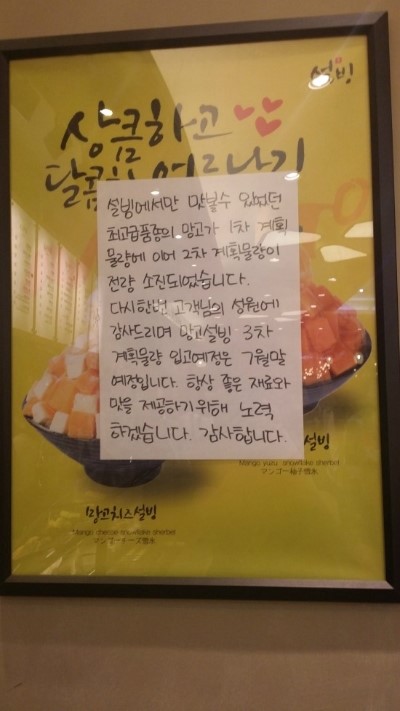 설빙
상큼하고
달콤한 여름나기
설빙에서만 맛볼수 있었던
최고급품종의 망고가 1차 계획
물량에 이어 2차 계획물량이
전량 소진되었습니다.
다시한번 고객님의 성원에
감사드리며 망고설빙 3차
계획물량 입고예정은 7월말
예정입니다. 항상 좋은 재료와
맛을 제공하기위해 노력
하겠습니다. 감사합니다.
설빙
Mango yuzu snowflake sherbet
マンゴー柚子惜氷
망고치즈설빙
Mango cheese snowflake sherbet
マンゴーチーズ惜氷